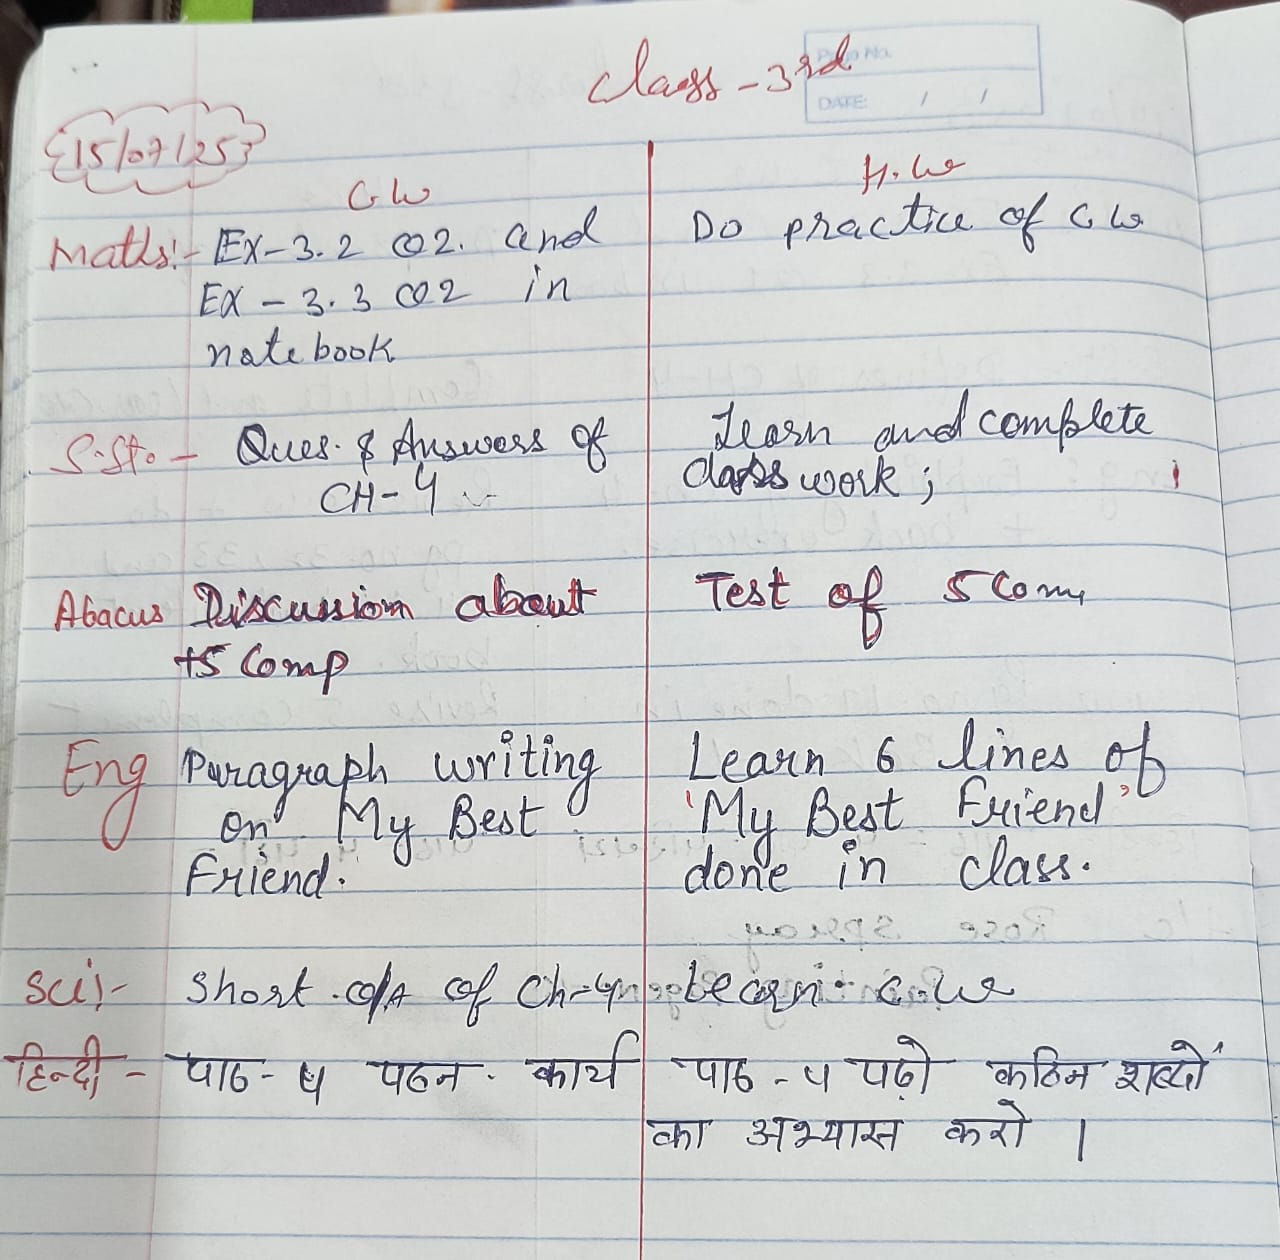 Class - 3rd
Page No.
DATE: / /
15/07/25
C.W
H.W
Maths:- Ex-3.2 Q2. and
Ex - 3.3 Q2 in
notebook
Do practice of C.W
S.St. - Ques. & Answers of
CH-4
Learn and complete
class work;
Abacus Discussion about
+5 Comp
Test of 5 Com
Eng Paragraph writing
on My Best
Friend.
Learn 6 lines of
'My Best Friend'
done in class.
Sci:- Short Q/A of Ch-4
Learn C.W
हिन्दी - पाठ - ५ पठन कार्य
पाठ - ५ पढ़ो कठिन शब्दों
का अभ्यास करो ।